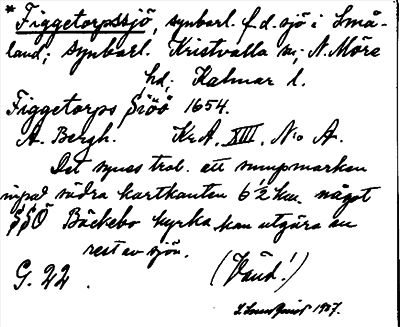 * Figgetorpssjö, synbarl. f.d. sjö i Små-
land; synbarl. Kristvalla sn; N. Möre
hd; Kalmar l.
Figgetorps Siöö 1654.
A. Bergh. KrA, XIII, No A.
Det synes trol. att sumpmarken
invid södra kartkanten 6½ km. något
SSÖ Bäckebo kyrka kan utgöra en
rest av sjön.
G. 22. (Vänd!)
1927.